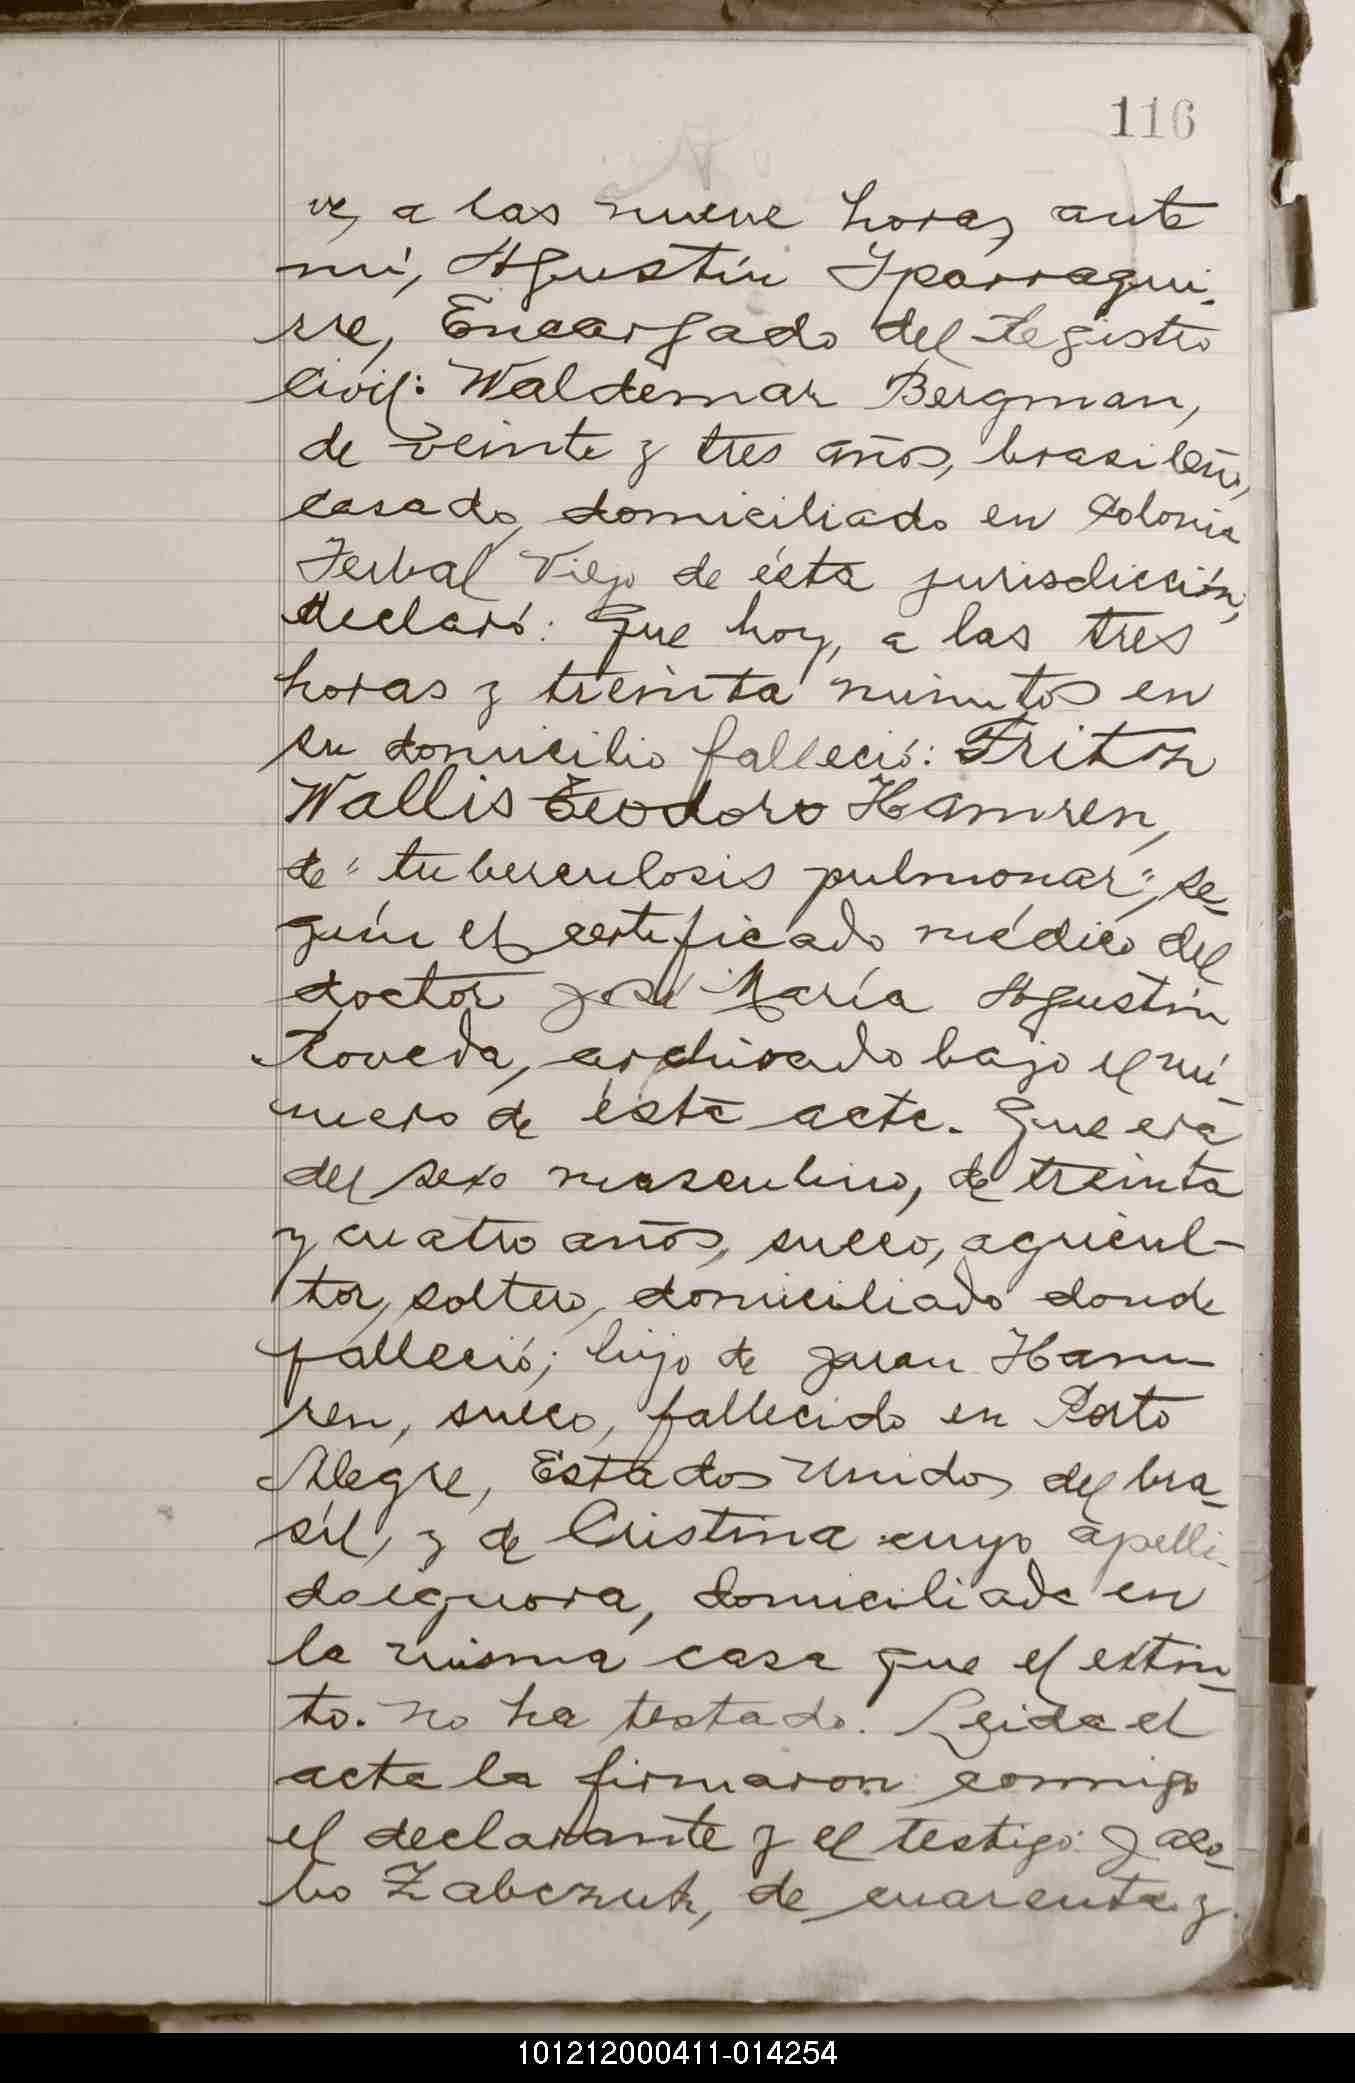 116
ve, a las nueve horas, ante
mí, Agustín Yparragui-
rre, Encargado del Registro
Civil: Waldemar Bergman,
de veinte y tres años, brasileño,
casado, domiciliado en Colonia
Yerbal Viejo de ésta jurisdicción,
declaró: Que hoy, a las tres
horas y treinta minutos en
su domicilio falleció: Fritz
Wallis Teodoro Hamren,
de "tuberculosis pulmonar", se-
gún el certificado médico del
doctor José María Agustín
Roveda, archivado bajo el nú
mero de ésta acta. Que era
del sexo masculino, de treinta
y cuatro años, sueco, agricul-
tor, soltero, domiciliado donde
falleció; hijo de Juan Ham-
ren, sueco, fallecido en Porto
Alegre, Estados Unidos del bra-
sil, y de Cristina cuyo apelli-
do ignora, domiciliada en
la misma casa que el extin-
to. no ha testado. Leida el
acta la firmaron conmigo
el declarante y el testigo: Jaco-
bo Zabczuk, de cuarenta y
101212000411-014254